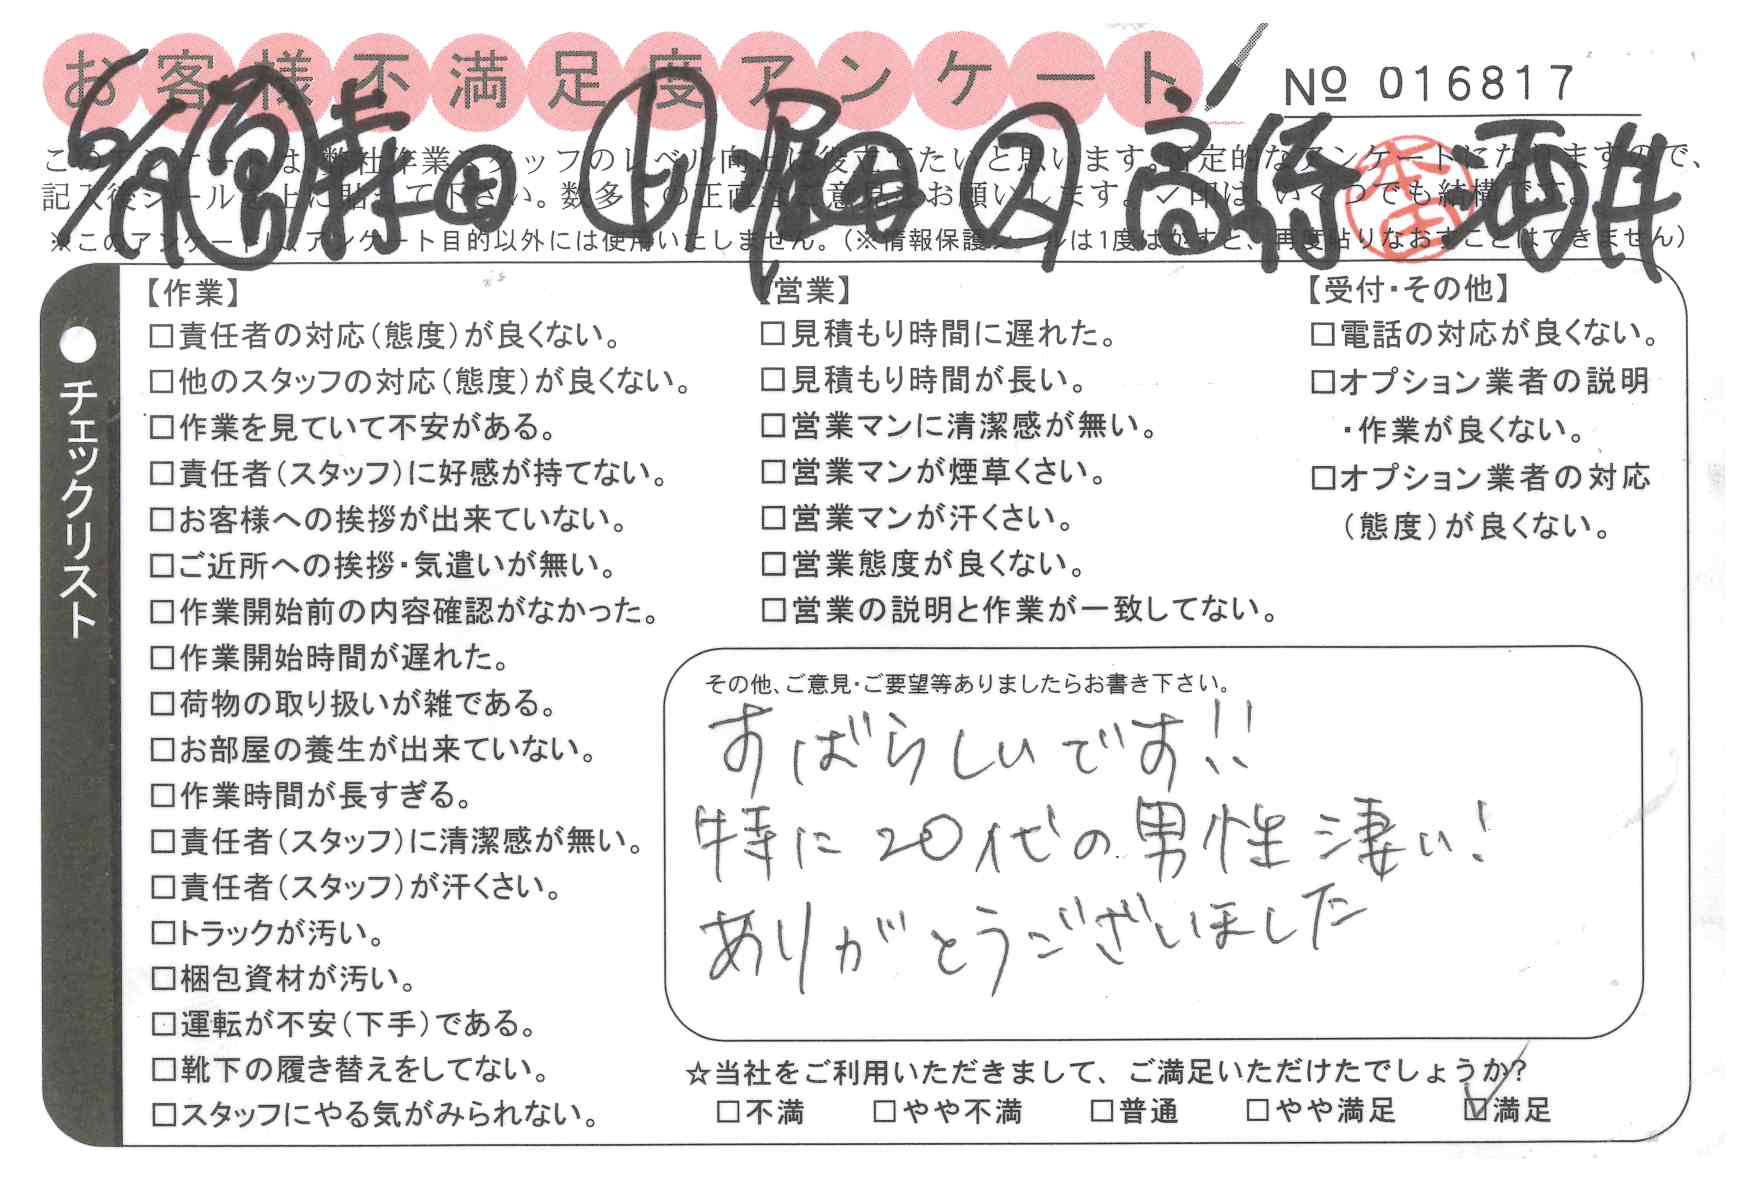 お客様不満足度アンケート
№ 016817
このアンケートは、弊社作業スタッフのレベル向上に役立てたいと思います。否定的なアンケートになりますので、
記入後シールを上に貼って下さい。数多くの正直なご意見をお願いします。✓印は、いくつでも結構です。
※このアンケートは、アンケート目的以外には使用いたしません。(※情報保護シールは1度はがすと、再度貼りなおすことはできません)
高橋 酒井
●チェックリスト
【作業】
□責任者の対応(態度)が良くない。
□他のスタッフの対応(態度)が良くない。
□作業を見ていて不安がある。
□責任者(スタッフ)に好感が持てない。
□お客様への挨拶が出来ていない。
□ご近所への挨拶・気遣いが無い。
□作業開始前の内容確認がなかった。
□作業開始時間が遅れた。
□荷物の取り扱いが雑である。
□お部屋の養生が出来ていない。
□作業時間が長すぎる。
□責任者(スタッフ)に清潔感が無い。
□責任者(スタッフ)が汗くさい。
□トラックが汚い。
□梱包資材が汚い。
□運転が不安(下手)である。
□靴下の履き替えをしてない。
□スタッフにやる気がみられない。
【営業】
□見積もり時間に遅れた。
□見積もり時間が長い。
□営業マンに清潔感が無い。
□営業マンが煙草くさい。
□営業マンが汗くさい。
□営業態度が良くない。
□営業の説明と作業が一致してない。
【受付・その他】
□電話の対応が良くない。
□オプション業者の説明
・作業が良くない。
□オプション業者の対応
(態度)が良くない。
その他、ご意見・ご要望等ありましたらお書き下さい。
すばらしいです!!
特に20代の男性凄い!
ありがとうございました
☆当社をご利用いただきまして、ご満足いただけたでしょうか?
□不満 □やや不満 □普通 □やや満足 ☑満足